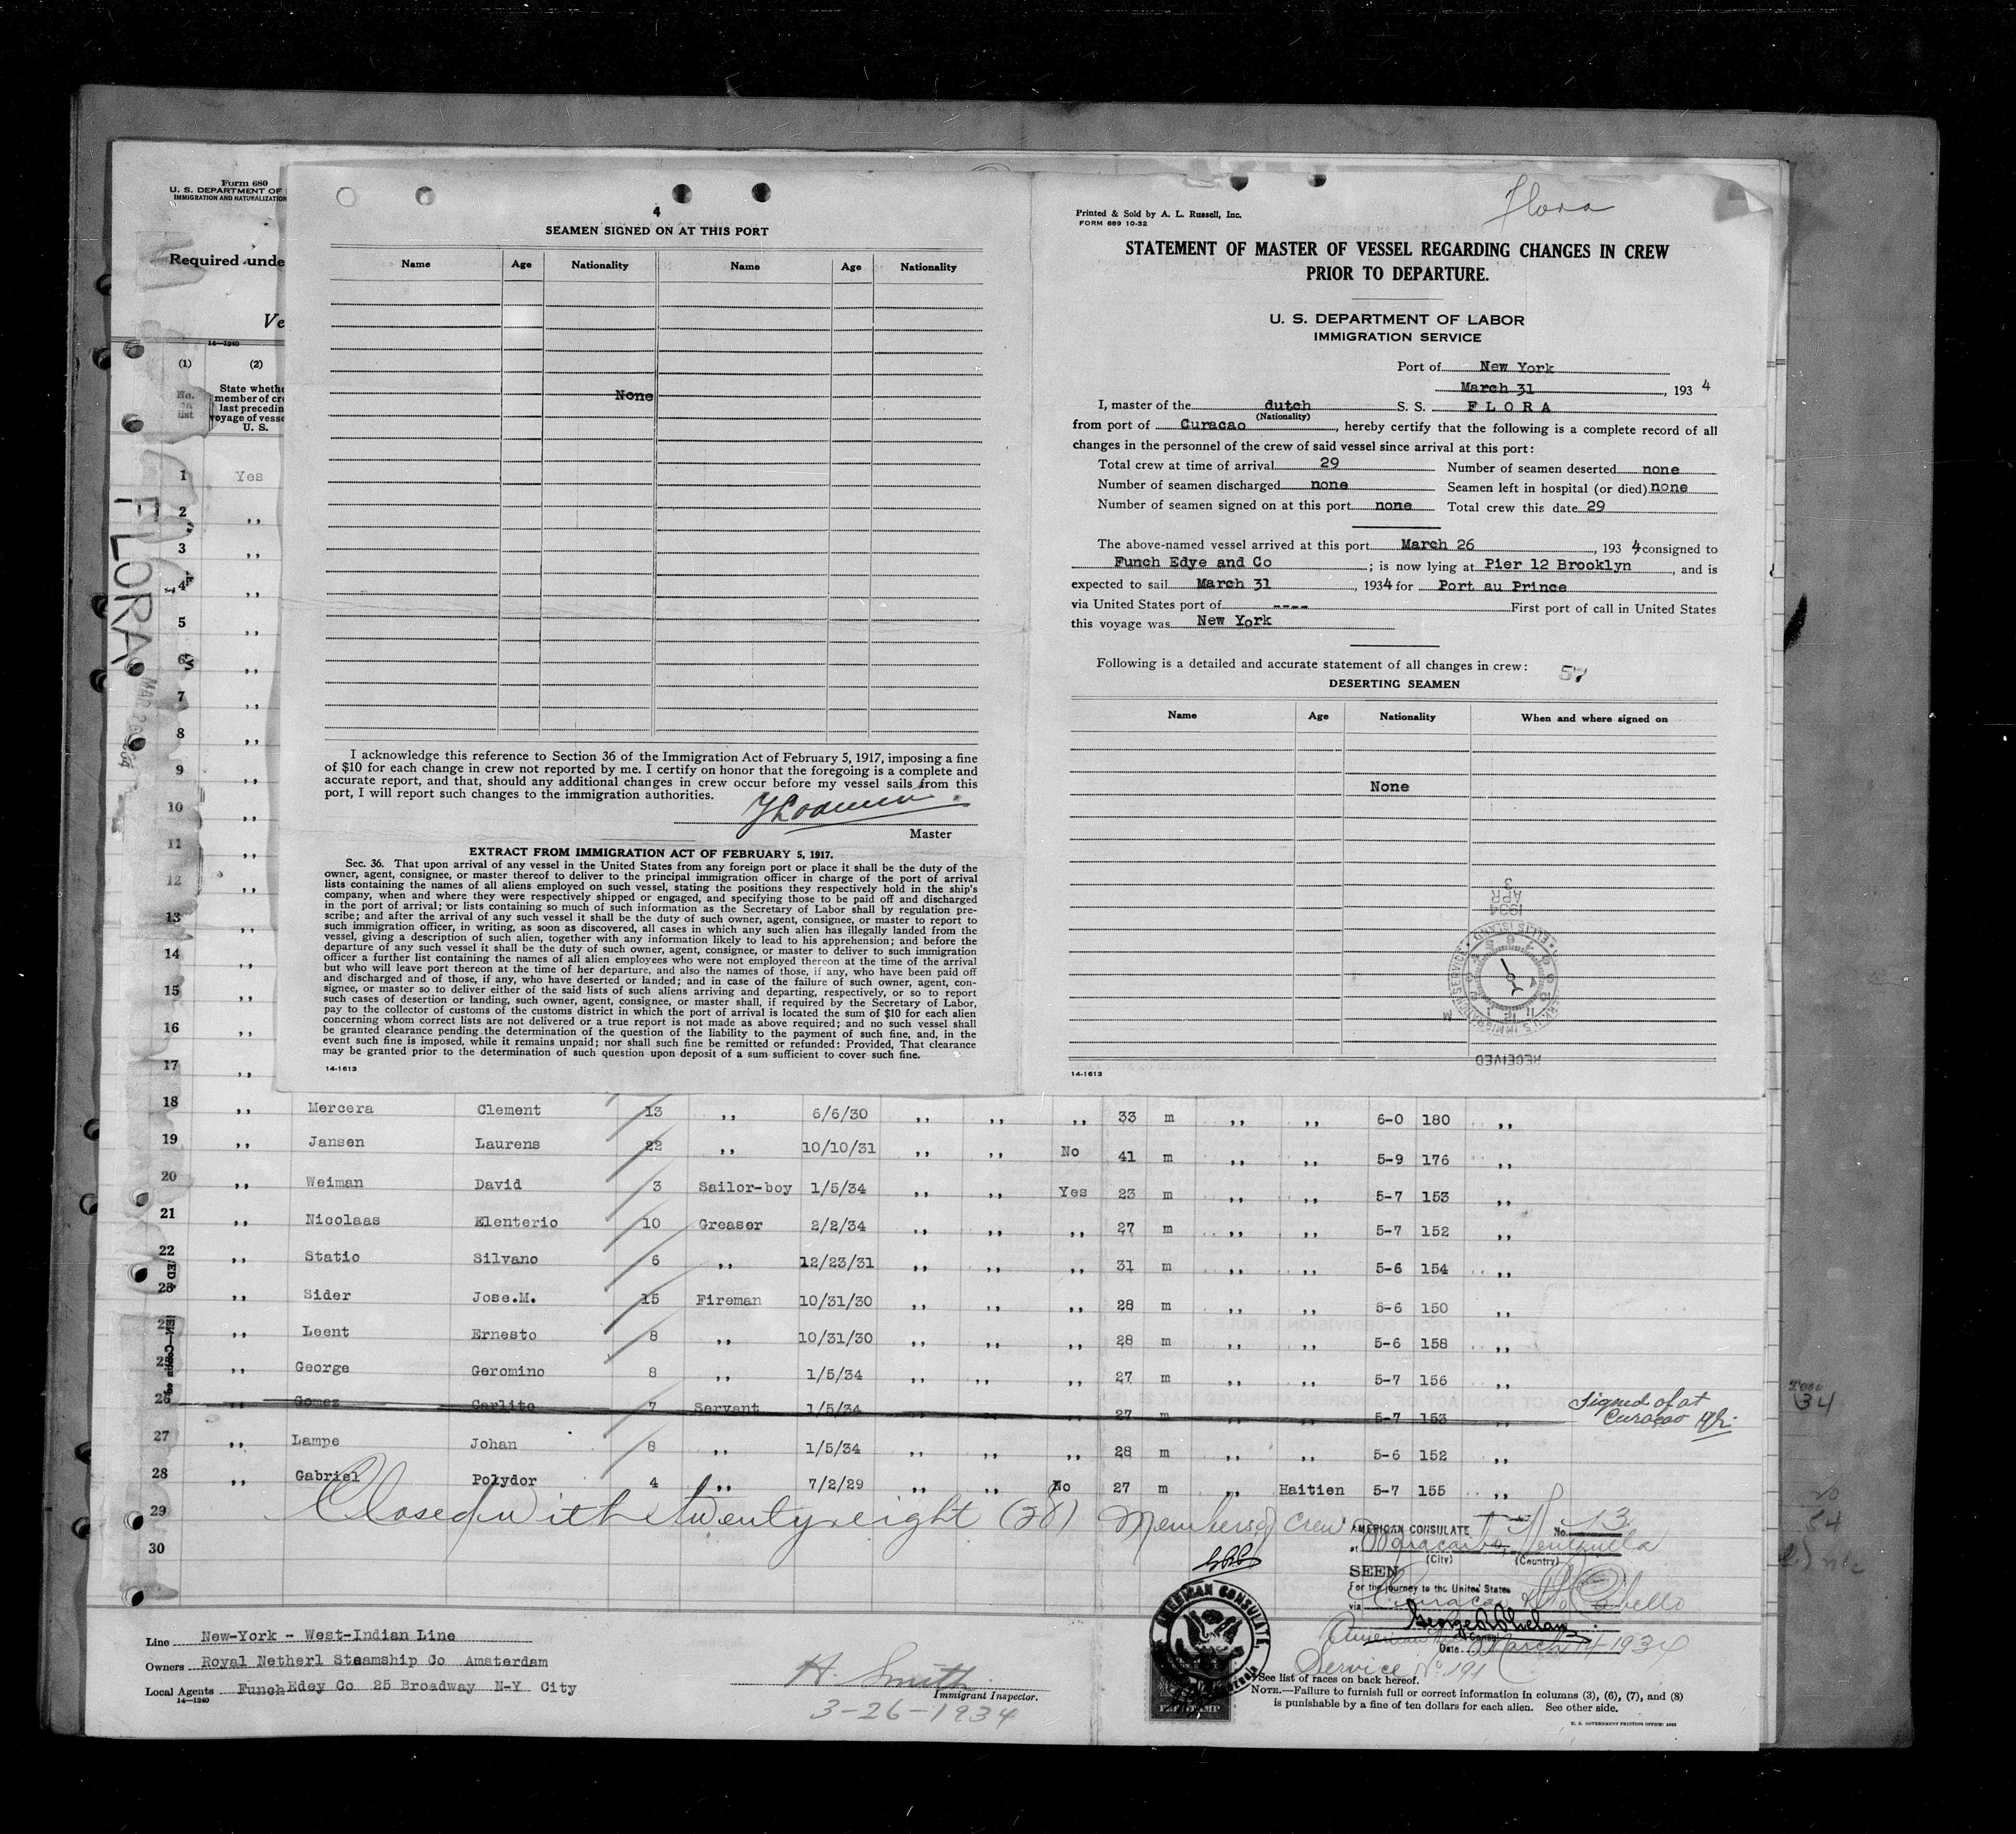 Form 680
U. S. DEPARTMENT OF
IMMIGRATION AND NATURALIZATION
Required unde
Ve
14—1240
(1) (2)
No. on list
State whethe
member of cre
last precedin
voyage of vesse
U. S.
1 Yes
2 ,,
3 ,,
4 ,,
5 ,,
6 ,,
7 ,,
8 ,,
9 ,,
10 ,,
11 ,,
12 ,,
13 ,,
14 ,,
15 ,,
16 ,,
17 ,,
FLORA
4
SEAMEN SIGNED ON AT THIS PORT
Name Age Nationality Name Age Nationality
None
I acknowledge this reference to Section 36 of the Immigration Act of February 5, 1917, imposing a fine
of $10 for each change in crew not reported by me. I certify on honor that the foregoing is a complete and
accurate report, and that, should any additional changes in crew occur before my vessel sails from this
port, I will report such changes to the immigration authorities.
Master
EXTRACT FROM IMMIGRATION ACT OF FEBRUARY 5, 1917.
Sec. 36. That upon arrival of any vessel in the United States from any foreign port or place it shall be the duty of the
owner, agent, consignee, or master thereof to deliver to the principal immigration officer in charge of the port of arrival
lists containing the names of all aliens employed on such vessel, stating the positions they respectively hold in the ship's
company, when and where they were respectively shipped or engaged, and specifying those to be paid off and discharged
in the port of arrival; or lists containing so much of such information as the Secretary of Labor shall by regulation pre-
scribe; and after the arrival of any such vessel it shall be the duty of such owner, agent, consignee, or master to report to
such immigration officer, in writing, as soon as discovered, all cases in which any such alien has illegally landed from the
vessel, giving a description of such alien, together with any information likely to lead to his apprehension; and before the
departure of any such vessel it shall be the duty of such owner, agent, consignee, or master to deliver to such immigration
officer a further list containing the names of all alien employees who were not employed thereon at the time of the arrival
but who will leave port thereon at the time of her departure, and also the names of those, if any, who have been paid off
and discharged and of those, if any, who have deserted or landed; and in case of the failure of such owner, agent, con-
signee, or master so to deliver either of the said lists of such aliens arriving and departing, respectively, or so to report
such cases of desertion or landing, such owner, agent, consignee, or master shall, if required by the Secretary of Labor,
pay to the collector of customs of the customs district in which the port of arrival is located the sum of $10 for each alien
concerning whom correct lists are not delivered or a true report is not made as above required; and no such vessel shall
be granted clearance pending the determination of the question of the liability to the payment of such fine, and, in the
event such fine is imposed, while it remains unpaid; nor shall such fine be remitted or refunded: Provided, That clearance
may be granted prior to the determination of such question upon deposit of a sum sufficient to cover such fine.
14-1613
Flora
Printed & Sold by A. L. Russell, Inc.
FORM 689 10-32
STATEMENT OF MASTER OF VESSEL REGARDING CHANGES IN CREW
PRIOR TO DEPARTURE.
U. S. DEPARTMENT OF LABOR
IMMIGRATION SERVICE
Port of New York
March 31, 1934
I, master of the dutch S. S. FLORA
(Nationality)
from port of Curacao, hereby certify that the following is a complete record of all
changes in the personnel of the crew of said vessel since arrival at this port:
Total crew at time of arrival 29 Number of seamen deserted none
Number of seamen discharged none Seamen left in hospital (or died) none
Number of seamen signed on at this port none Total crew this date 29
The above-named vessel arrived at this port March 26, 1934 consigned to
Funch Edye and Co; is now lying at Pier 12 Brooklyn, and is
expected to sail March 31, 1934 for Port au Prince
via United States port of ---- First port of call in United States
this voyage was New York
Following is a detailed and accurate statement of all changes in crew:
57
DESERTING SEAMEN
Name Age Nationality When and where signed on
None
1934
APR
3
ELLIS ISLAND
RECEIVED
14-1613
18 ,, Mercera Clement 13 ,, 6/6/30 ,, ,, ,, 33 m ,, ,, 6-0 180 ,,
19 ,, Jansen Laurens 22 ,, 10/10/31 ,, ,, No 41 m ,, ,, 5-9 176 ,,
20 ,, Weiman David 3 Sailor-boy 1/5/34 ,, ,, Yes 23 m ,, ,, 5-7 153 ,,
21 ,, Nicolaas Elenterio 10 Greaser 2/2/34 ,, ,, ,, 27 m ,, ,, 5-7 152 ,,
22 ,, Statio Silvano 6 ,, 12/23/31 ,, ,, ,, 31 m ,, ,, 5-6 154 ,,
23 ,, Sider Jose.M. 15 Fireman 10/31/30 ,, ,, ,, 28 m ,, ,, 5-6 150 ,,
24 ,, Leent Ernesto 8 ,, 10/31/30 ,, ,, ,, 28 m ,, ,, 5-6 158 ,,
25 ,, George Geromino 8 ,, 1/5/34 ,, ,, ,, 27 m ,, ,, 5-7 156 ,,
26 ,, Gomez Carlito 7 Servant 1/5/34 ,, ,, ,, 27 m ,, ,, 5-7 153 ,, Signed of at
Curacao
27 ,, Lampe Johan 8 ,, 1/5/34 ,, ,, ,, 28 m ,, ,, 5-6 152 ,,
28 ,, Gabriel Polydor 4 ,, 7/2/29 ,, ,, No 27 m ,, Haitien 5-7 155 ,,
29 Closed with twenty eight (28) Members of crew
30
AMERICAN CONSULATE No. 13
at Maracaibo, Venezuela
(City) (Country)
SEEN
For the journey to the United States
via Curacao & Pto Cabello
George R Phelan
Date March 14-1934
Service No 191
AMERICAN CONSULATE
Line New-York - West-Indian Line
Owners Royal Netherl Steamship Co Amsterdam
Local Agents Funch Edey Co 25 Broadway N-Y City
14—1240
H. Smith
Immigrant Inspector.
3-26-1934
See list of races on back hereof.
NOTE.—Failure to furnish full or correct information in columns (3), (6), (7), and (8)
is punishable by a fine of ten dollars for each alien. See other side.
U. S. GOVERNMENT PRINTING OFFICE: 1933
34